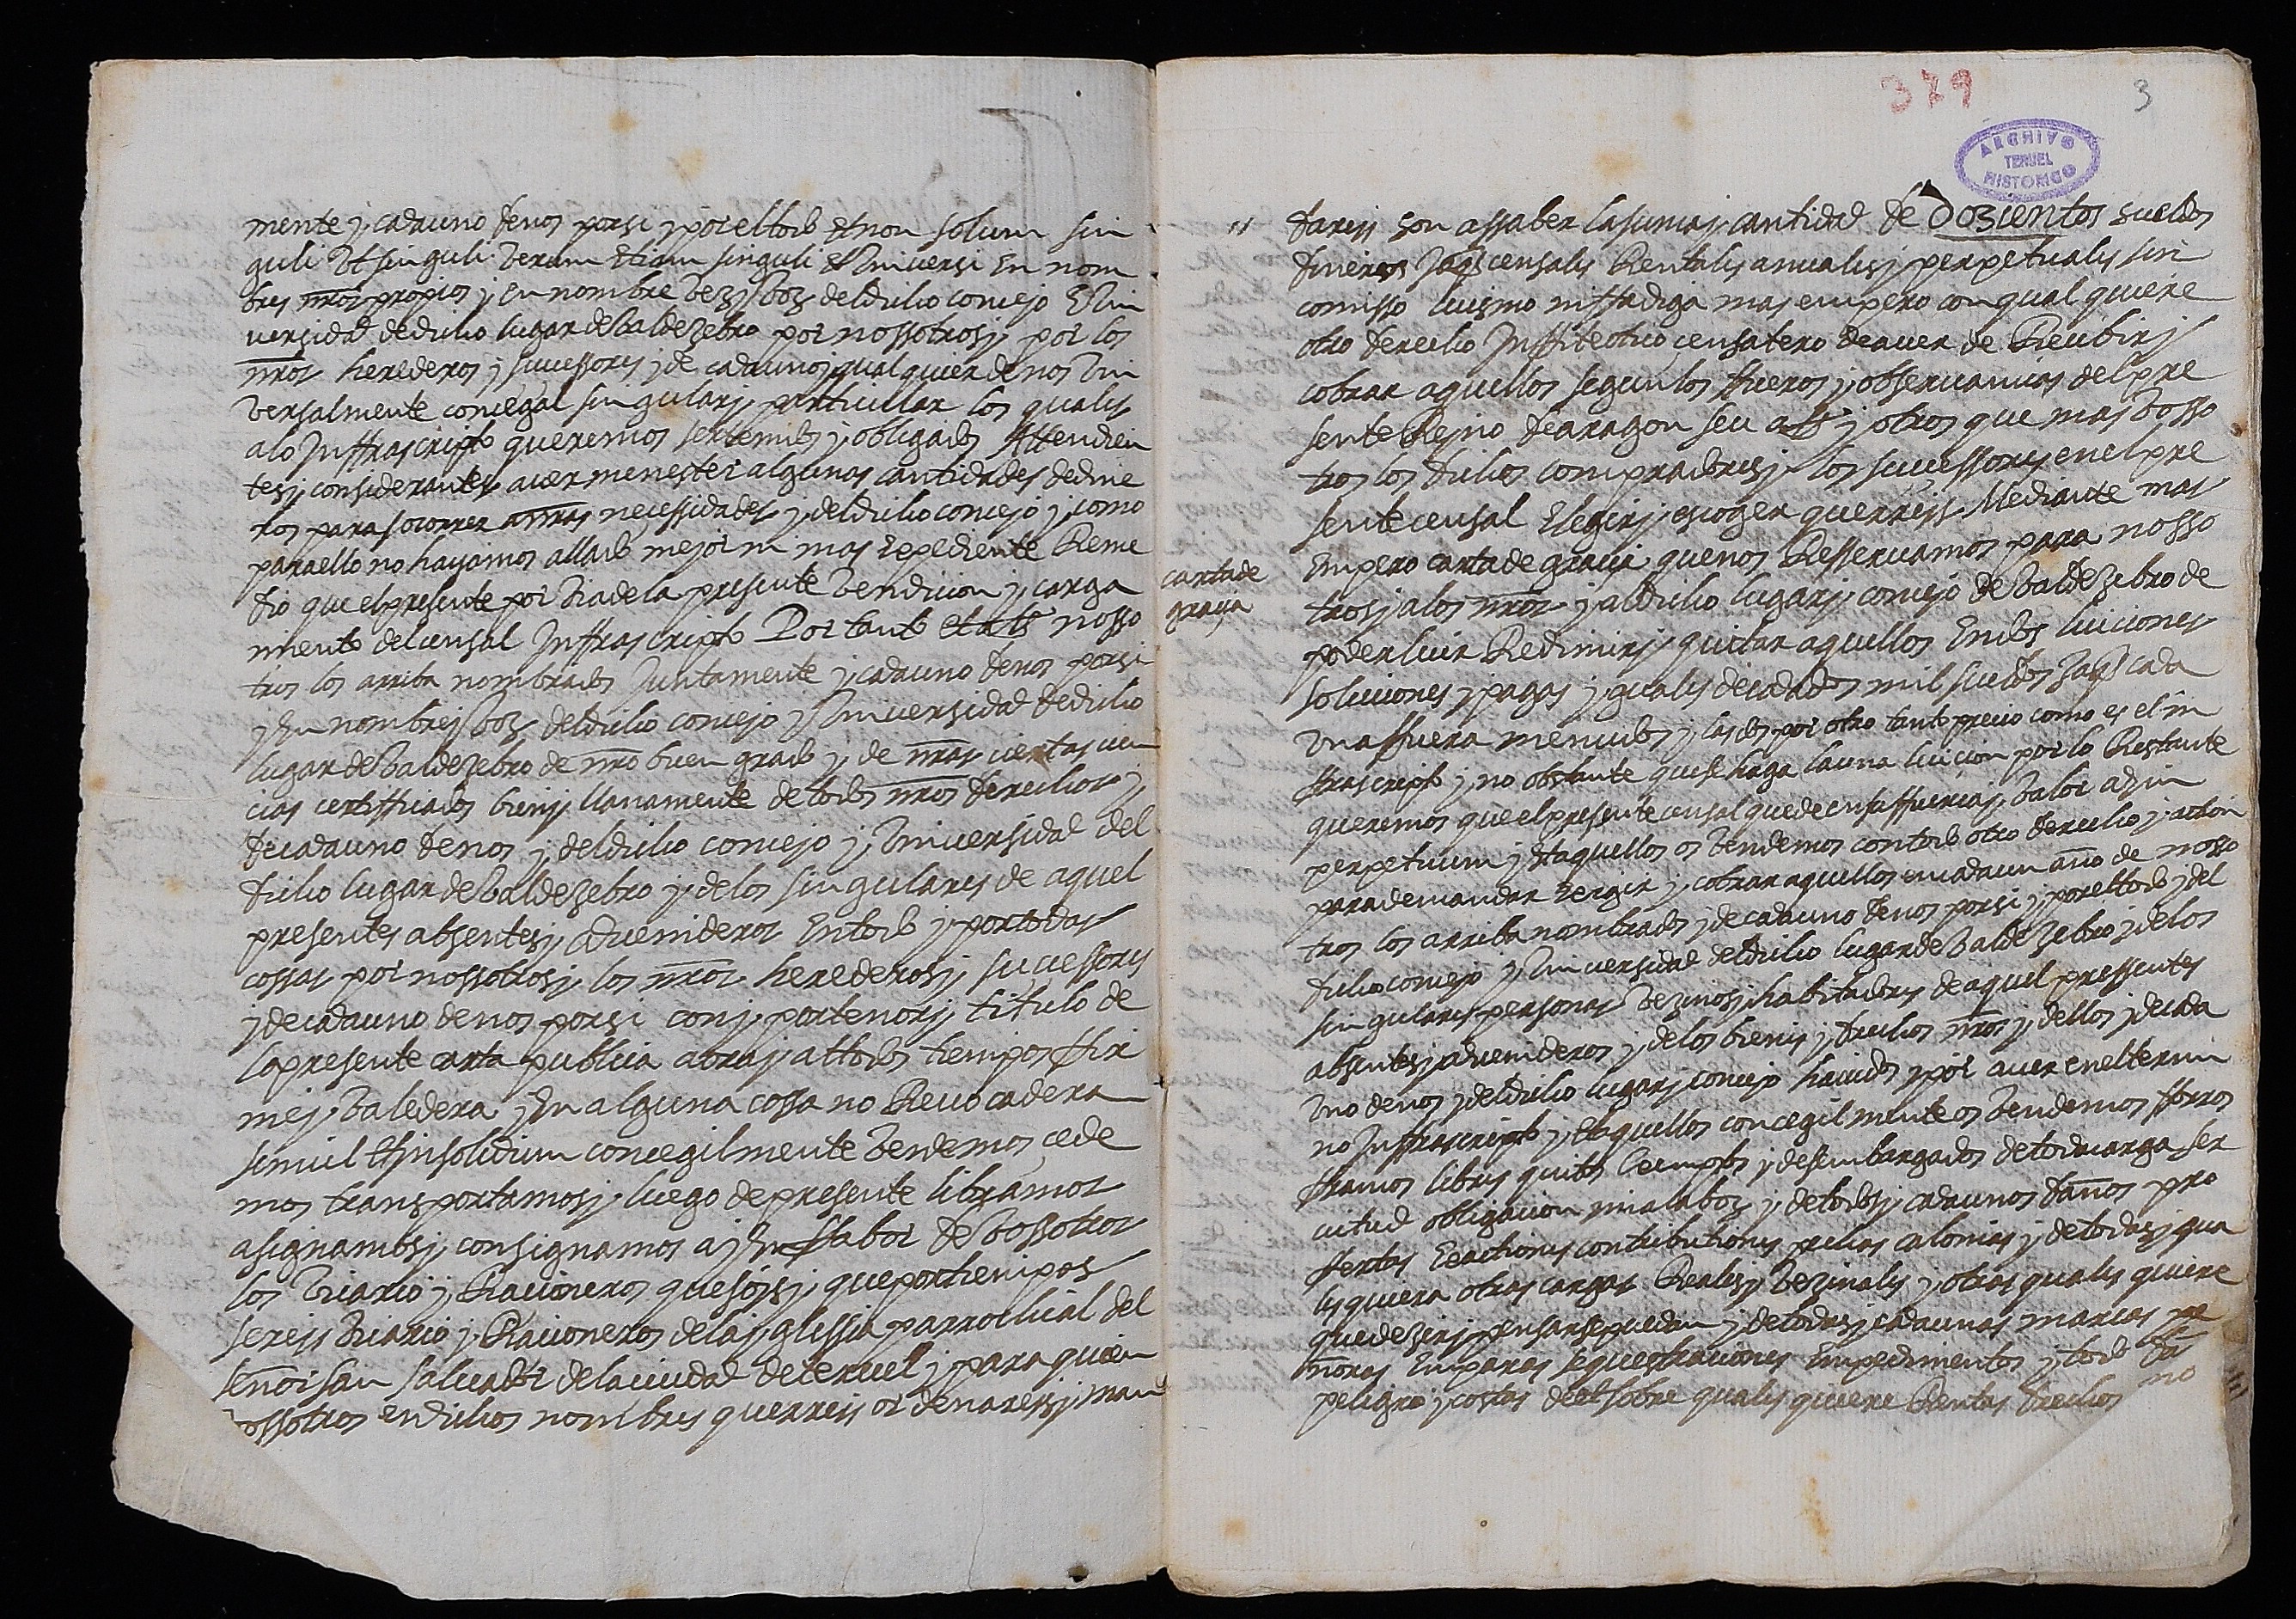 mente y cadauno denos porsi y por eltodo Et non solum sin
guli Vt singuli verum Etiam singuli Et Vniversi En nom
bres nros propios y En nombre Vez y boz deldicho concejo E Vni
uersidad dedicho lugar de Baldezebro por nossotros y por los
nros herederos y sucessores y de cadauno y qualquier de nos Vni
versalmente concegal singular y particullar los quales
alo Inffrascripto queremos ser tenidos y obligados Attendien
tes y considerantes auer menester algunas cantidades de dine
ros para socorrer a nras necessidades y deldicho concejo y como
para ello no hayamos allado mejor ni mas Expediente Reme
dio que elpresente por Via de la presente Vendicion y carga
miento del censal Inffrascripto Por tanto nosso
tros los arriba nombrados Juntamente y cadauno denos porsi
y En nombre y Voz deldicho concejo y Vniuersidad dedicho
lugar de Baldezebro de nro buen grado y de nras ciertas cien
cias certifficados bien y llanamente de todos nros derechos y
de cadauno denos y deldicho concejo y Vniuersidad del
dicho lugar de Baldezebro y delos singulares de aquel
presentes absentes y aduenideros En todo y por todas
cossas por nossotros y los nros herederos y sucessores
y decadauno de nos porsi con y por tenor y titulo de
la presente carta publica abra y attodos tiempos ffir
me y Baledera y En alguna cossa no Reuocadera
simul Et Insolidum concegilmente Vendemos cede
mos transportamos y luego depresente libramos
asignamos y consignamos a y En ffabor de Bossotros
los Vicario y Racioneros que soys y que por tiempos
sereis Vicario y Racioneros dela yglessia parrochial del
señor san saluador delaciudad deteruel y para quien
Vossotros en dichos nombres querreis ordenareis y man
379
3
ARCHIVO
TERUEL
HISTORICO
dareis son assaber la suma y cantidad de Doscientos sueldos
dineros Jaqs censales Rentales anuales y perpetuales sin
comisso luismo ni ffadiga mas empero con qual quiere
otro derecho Inffiteotico censatero de auer de Recibir y
cobrar aquellos segun los ffueros y obseruancias del pre
sente Reyno de aragon seu als y otros que mas Vosso
tros los dichos compradores y los sucessores en el pre
sente censal Elegir y escoger querreis Mediante mas
Empero carta de gracia que nos Resseruamos para nosso
carta de
gracia
tros y alos nros y aldicho lugar y concejo de Baldezebro de
poder luir Redimir y quitar aquellos En dos luiciones
soluciones y pagas yguales decada dos mil sueldos Jaqs cada
Vna ffuera menudos y las dos por otro tanto precio como es el in
ffrascripto y no obstante que se haga la una luicion por lo Restante
queremos que elpresente censal quede en su ffuerça y Valor ad in
perpetuum y Et aquellos os Vendemos contodo otro derecho y action
para demandar Exigir y cobrar aquellos en cadaun año de nosso
tros los arriba nombrados y de cadauno denos porsi y por eltodo y del
dicho concejo y Vniuersidad deldicho lugar de Baldezebro y delos
singulares personas Vezinos y habitadores de aquel pressentes
absentes y aduenideros y delos bienes y drechos nros y dellos y decada
Vno denos y deldicho lugar y concejo hauidos y por auer en eltermi
no Inffrascripto y Et aquellos concegilmente os Vendemos fforros
ffrancos libres quitos Exemptos y desembargados detoda carga ser
uitud obligacion mala boz y detodos y cadaunos daños pro
ffertas Exactiones contributiones pechas calonias y detodas y qua
lesquiera otras cargas Reales y Vezinales y otras quales quiere
que dezir y pensar se puedan y detodas y cadaunas marcas pe
ñoras Emparas sequestraciones Empedimentos y todo da
peligro y costas de et sobre quales quiere Rentas drechos
no